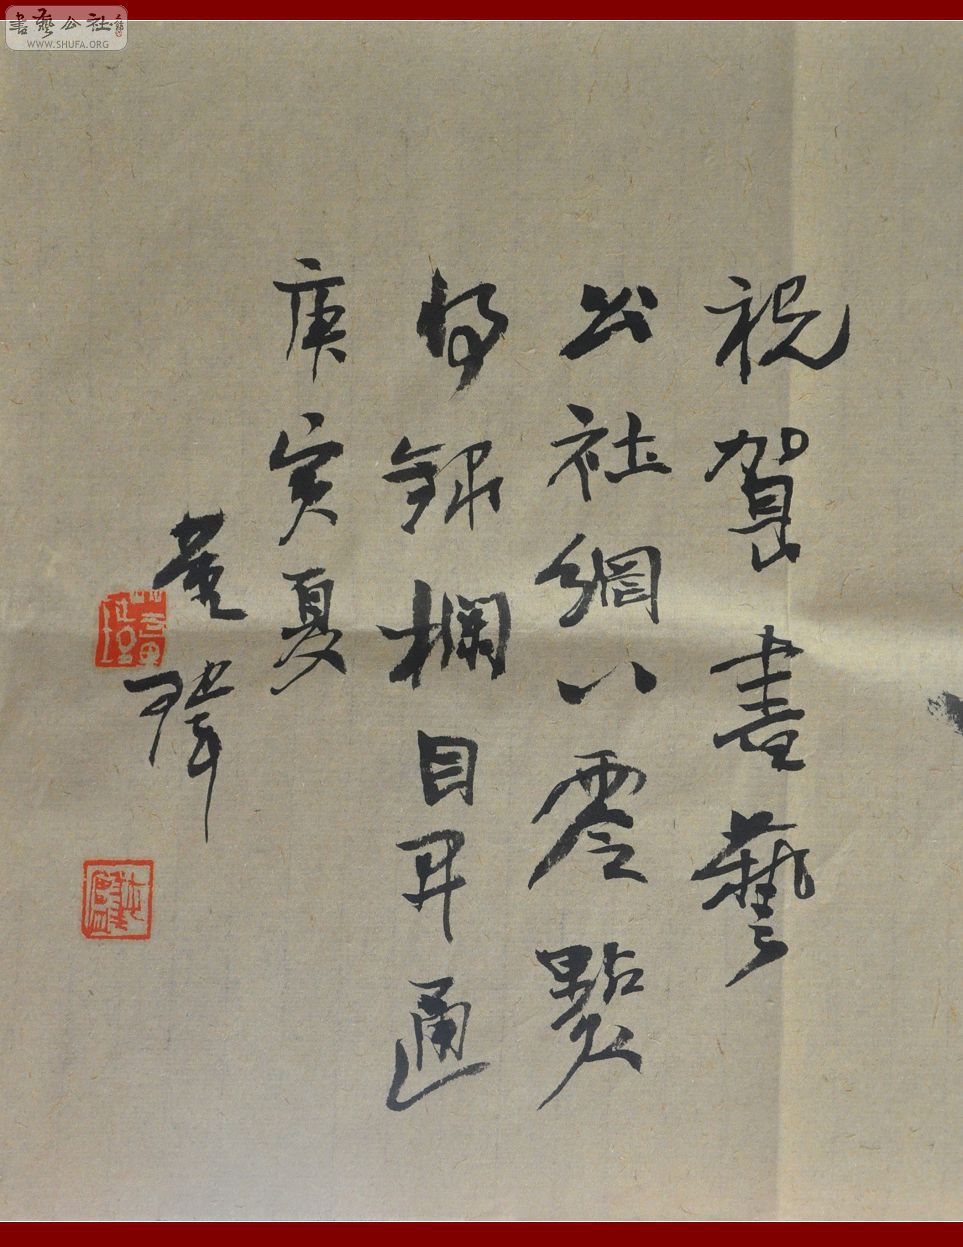 書藝公社
WWW.SHUFA.ORG
祝賀書藝
公社網八零點
時錄欄目開通
庚寅夏
董瑋